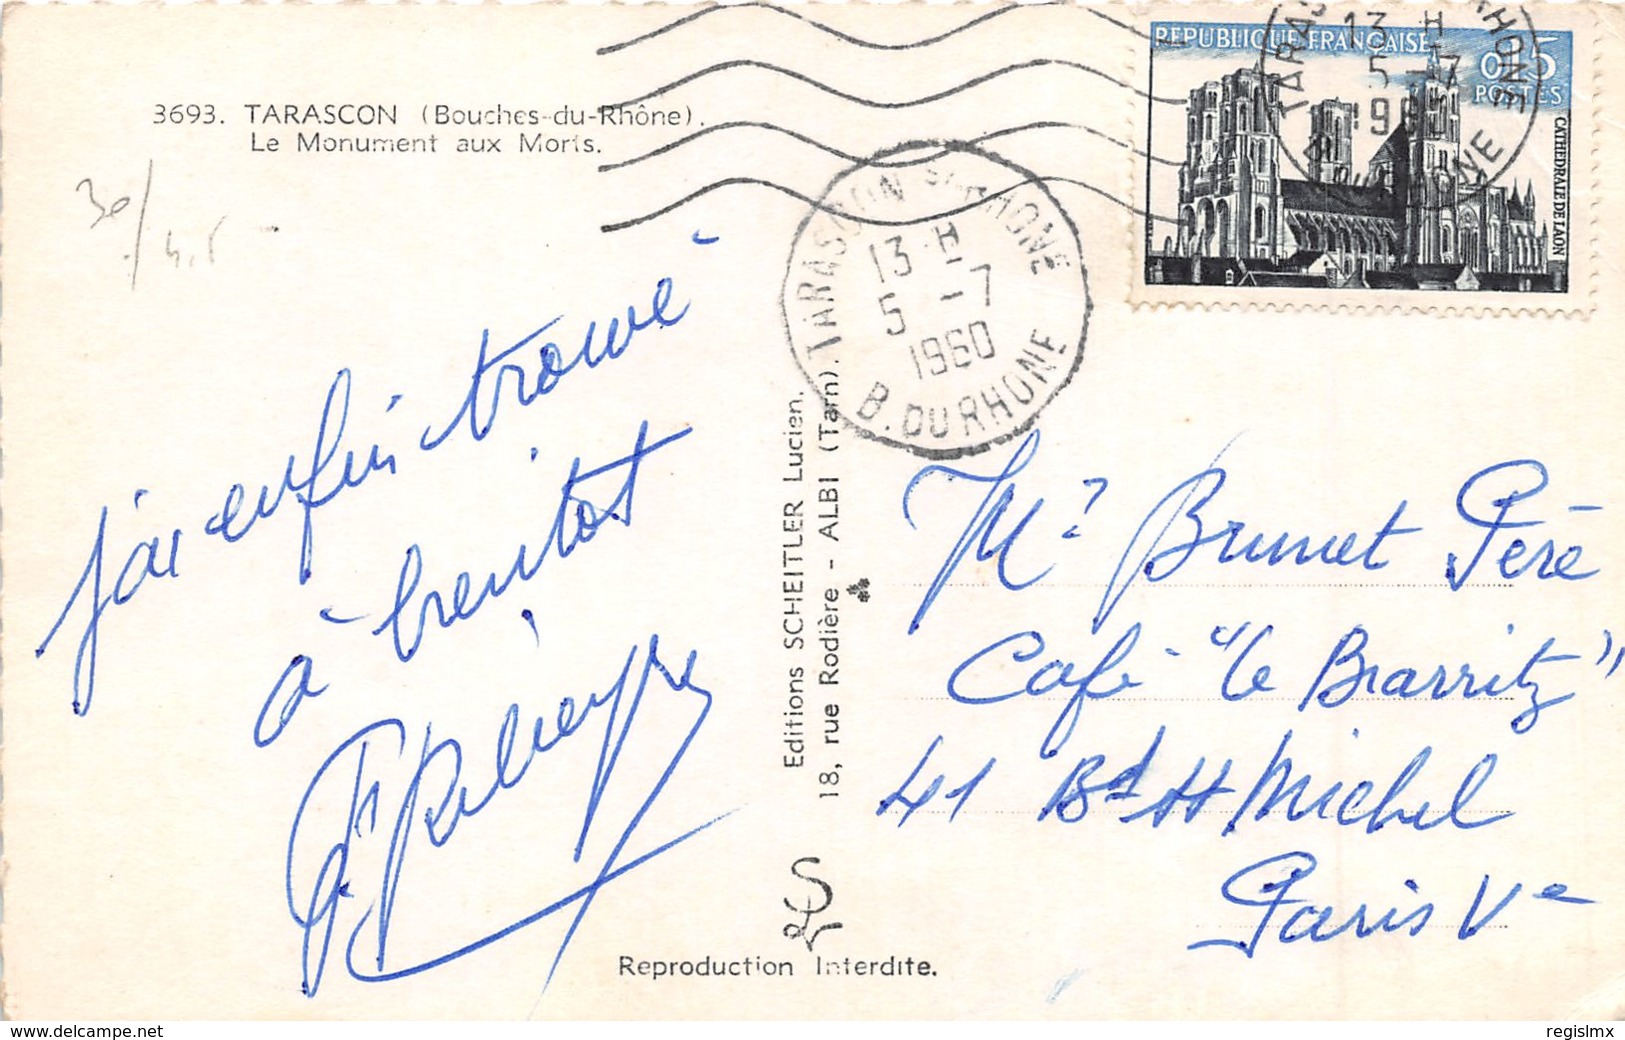 3693. TARASCON (Bouches-du-Rhône).
Le Monument aux Morts.
30/
4.5
j'ai enfin trouvé
à bientot
Editions SCHEITLER Lucien.
18, rue Rodière - ALBI (Tarn).
Reproduction Interdite.
TARASCON S/ RHONE
13 H
5 -7
1960
B. DU RHONE
REPUBLIQUE FRANÇAISE
0,15
POSTES
CATHEDRALE DE LAON
13 H
5 -7
1960
Mr Brunet Père
Café "le Biarritz"
41 Bd St Michel
Paris Ve
www.delcampe.net
regislmx